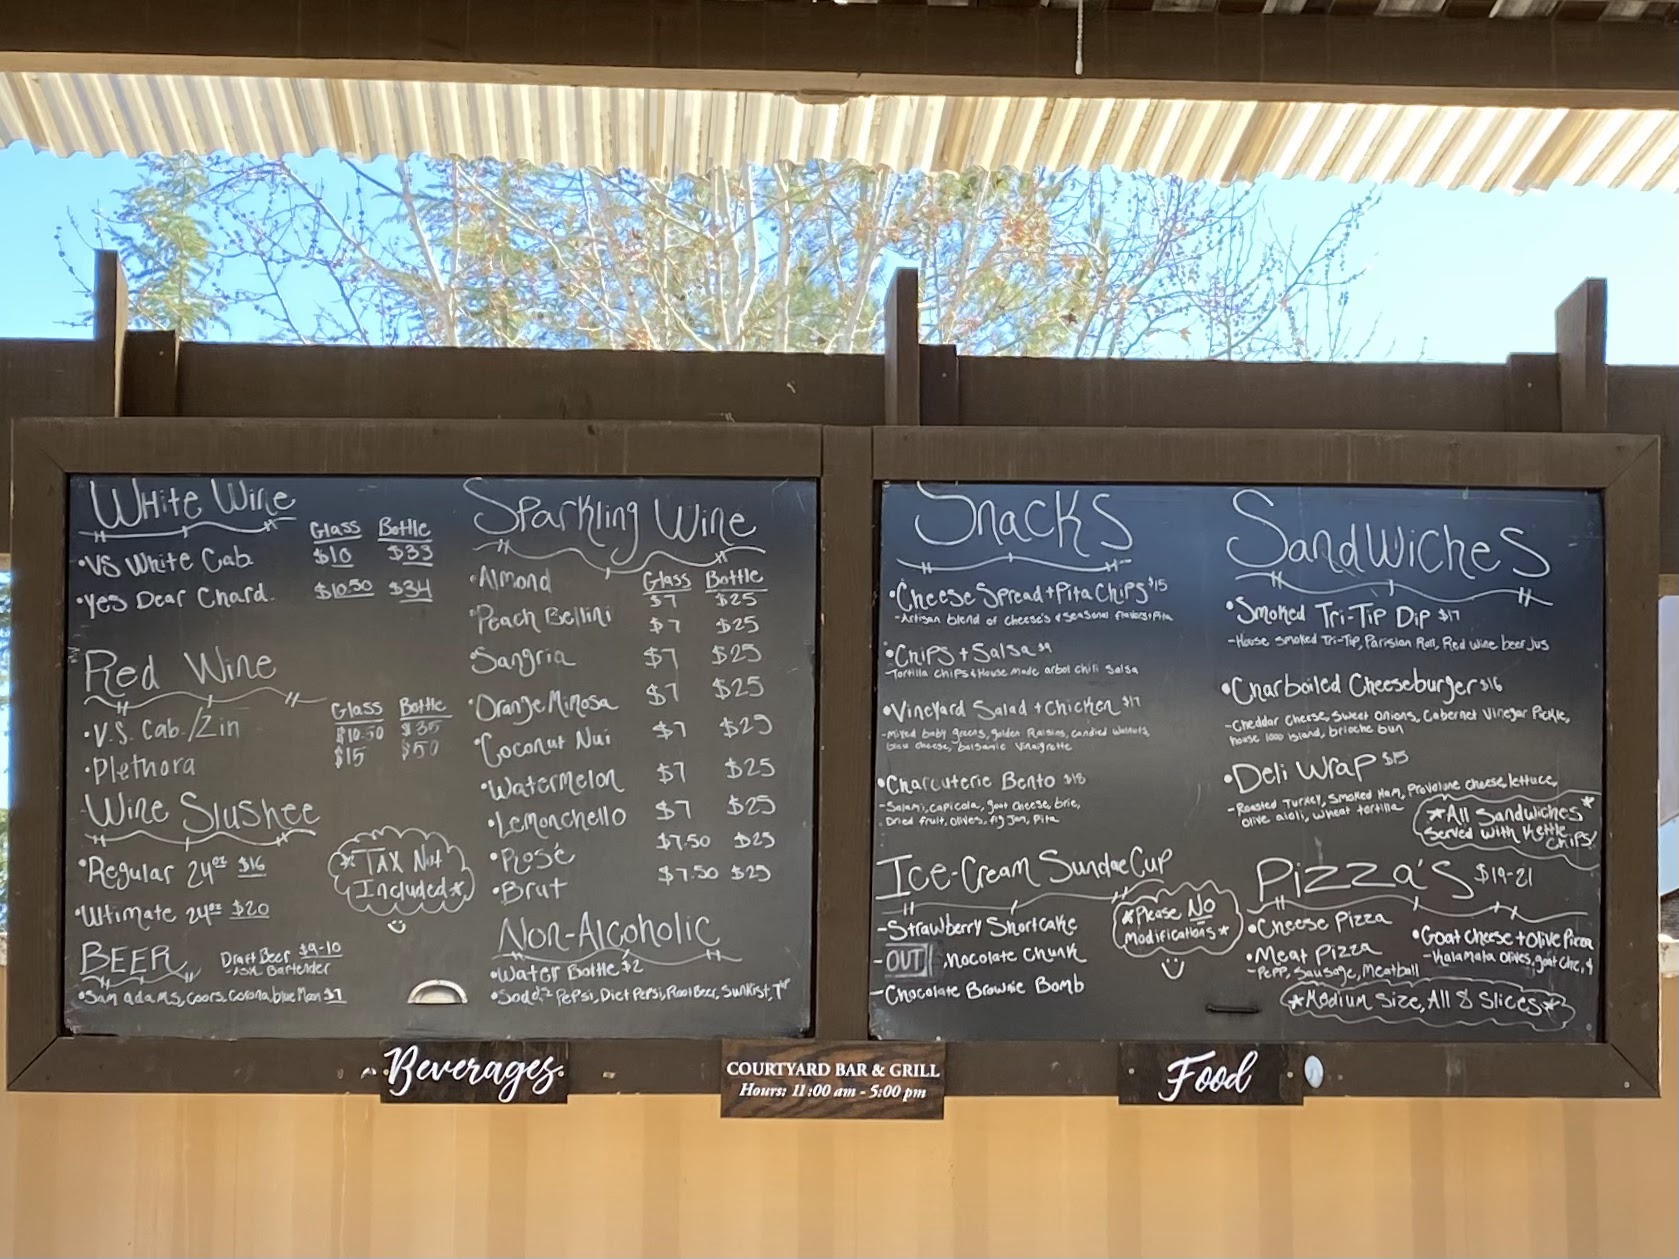 White Wine
Glass Bottle
•VS White Cab $10 $33
•Yes Dear Chard. $10.50 $34
Red Wine
Glass Bottle
•V.S. Cab./Zin $10.50 $35
•Plethora $15 $50
Wine Slushee
•Regular 24oz $16
•Ultimate 24oz $20
*TAX Not
Included*
BEER Draft Beer $9-10
Bartender
•Sam adams, Coors, Corona, blue Moon $7
Sparkling Wine
Glass Bottle
•Almond $7 $25
Peach Bellini $7 $25
•Sangria $7 $25
•Orange Mimosa $7 $25
•Coconut Nui $7 $25
•Watermelon $7 $25
•Lemonchello $7 $25
•Rosé $7.50 $25
•Brut $7.50 $25
Non-Alcoholic
•Water Bottle $2
•Soda $2 Pepsi, Diet Pepsi, Root Beer, Sunkist,
Snacks
•Cheese Spread + Pita Chips $15
-Artisan blend of cheese's & seasonal flavors + Pita
•Chips + Salsa $9
-Tortilla chips & House made arbol chili salsa
•Vineyard Salad + Chicken $17
-Mixed baby greens, golden Raisins, candied walnuts,
bleu cheese, balsamic Vinaigrette
•Charcuterie Bento $18
-Salami, capicola, goat cheese, brie,
Dried fruit, olives, fig Jam, Pita
Ice-Cream Sundae Cup
-Strawberry Shortcake
-OUT hocolate Chunk
-Chocolate Brownie Bomb
*Please NO
Modifications*
Sandwiches
•Smoked Tri-Tip Dip $17
-House smoked Tri-Tip, Parisian Roll, Red wine beer Jus
•Charboiled Cheeseburger $16
-Cheddar Cheese, Sweet Onions, Cabernet Vinegar Pickle,
house 1000 island, brioche bun
•Deli Wrap $15
-Roasted Turkey, Smoked Ham, Provolone cheese, lettuce,
olive aioli, wheat tortilla
*All Sandwiches*
Served with Kettle
Chips!
Pizza's $19-21
•Cheese Pizza
•Meat Pizza
-Pepp, Sausage, Meatball
•Goat Cheese + Olive Pizza
-Kalamata olives, goat che,
*Medium Size, All 8 Slices*
Beverages
COURTYARD BAR & GRILL
Hours: 11:00 am - 5:00 pm
Food